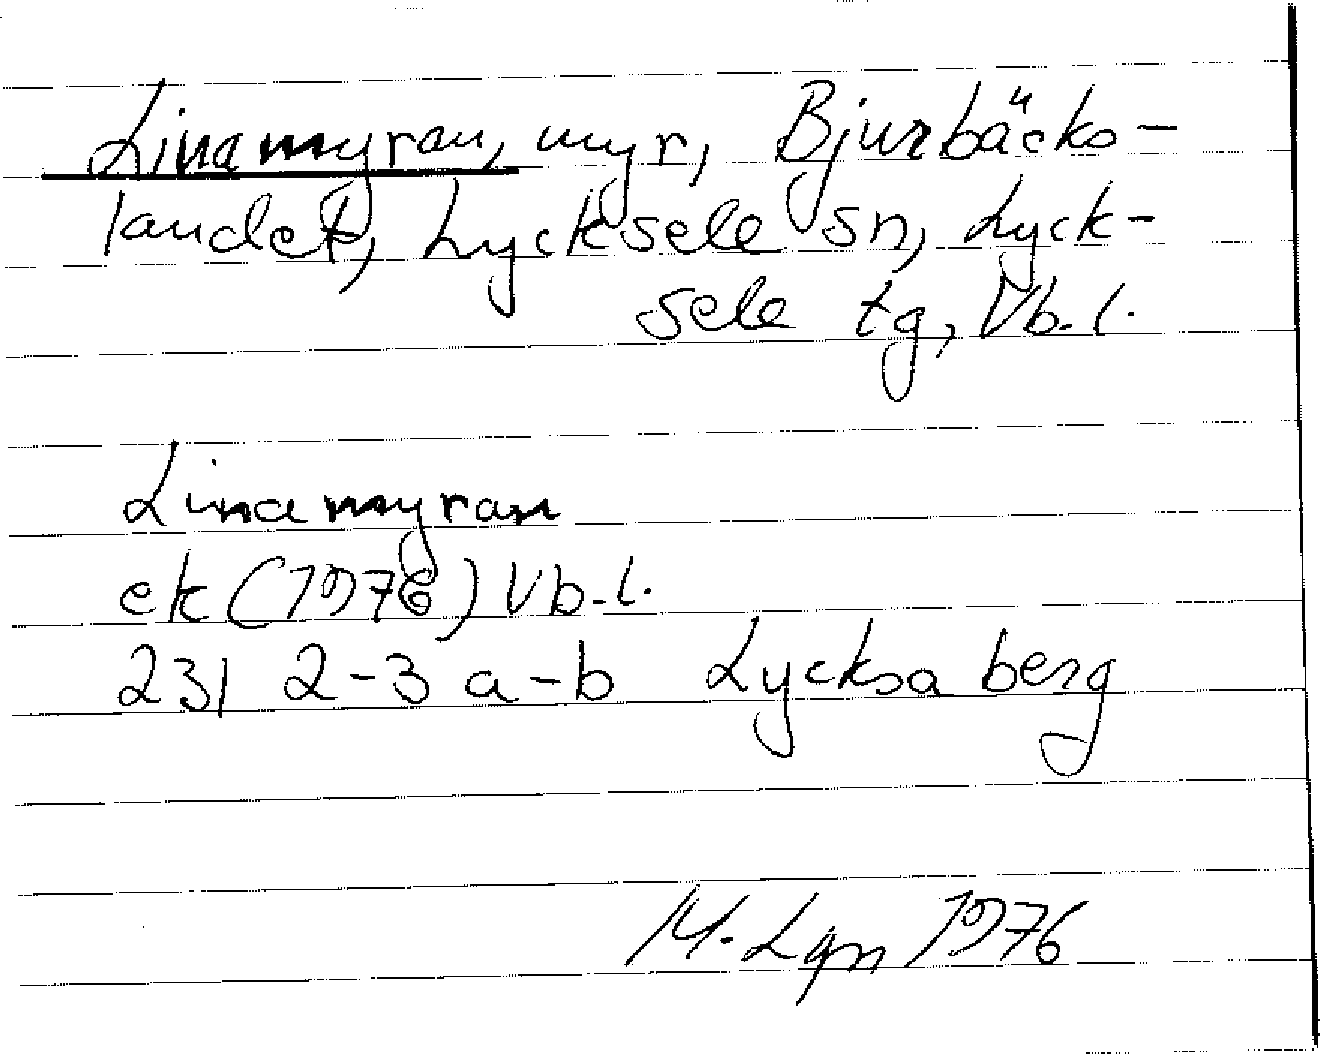 Linamyran, myr, Bjurbäcks-
landet, Lycksele sn, Lyck-
sele tg, Vb. l.
Linamyran
ek (1976) Vb. l.
23I 2-3 a-b Lycksaberg
M. Lgn 1976